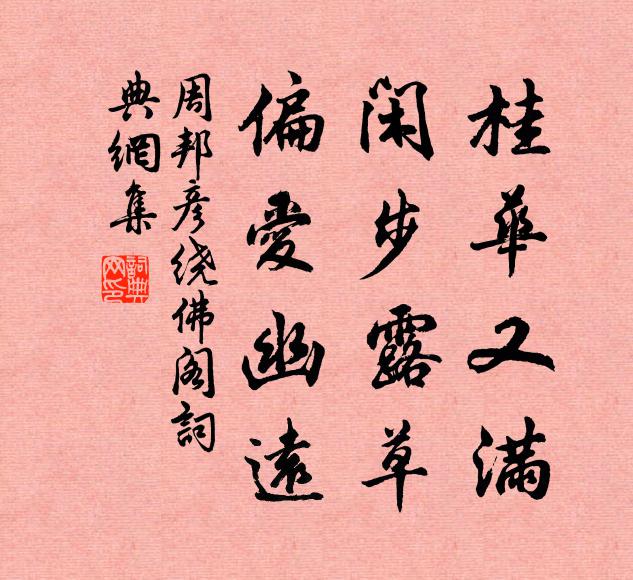 桂華又滿
閑步露草
偏愛幽遠
周邦彦绕佛阁詞
典網集
詞典网印